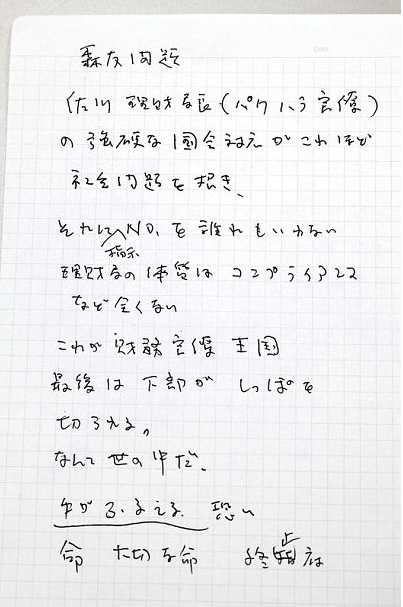 森友問題
佐川 理財局長(パワハラ官僚)
の強硬な国会対応がこれほど
社会問題を招き、
それにNO,を誰れもいわない
指示
理財局の体質はコンプライアンス
など全くない
これが財務官僚王国
最後は下部がしっぽを
切られる。
なんて世の中だ、
手がふるえる 恐い
命 大切な命 終止府